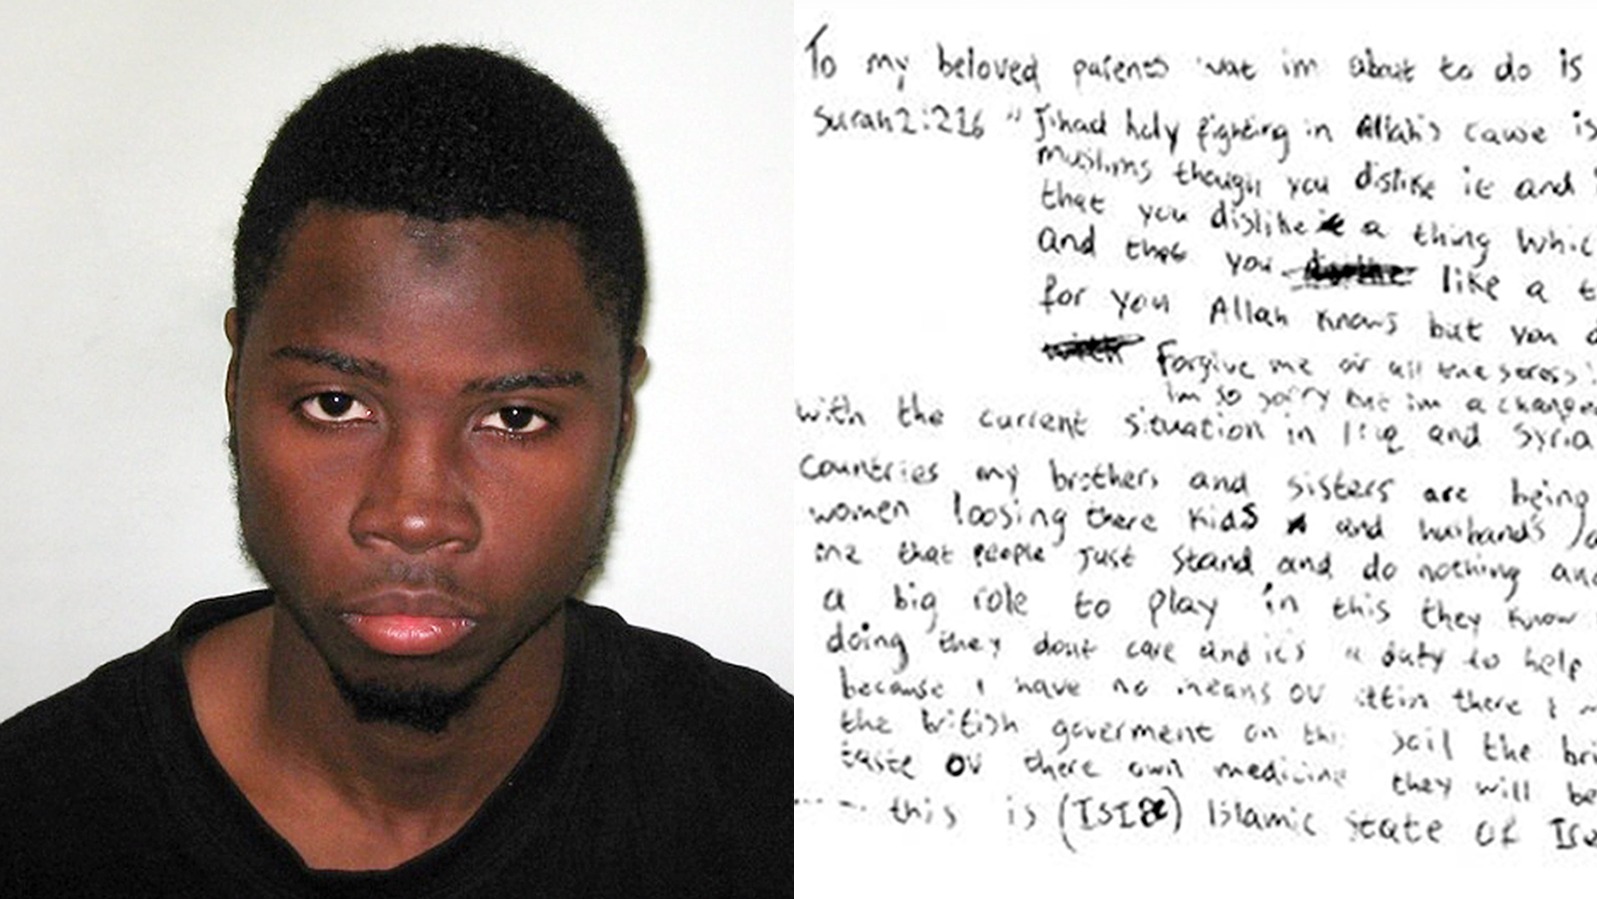 To my beloved parents wat im about to do is
Surah 2:216 "Jihad holy fighting in Allah's cause is
muslims though you dislike it and
that you dislike a thing Whic
and that you like a t
for you Allah knows but you d
Forgive me ov all the stress!
Im so sorry but im a change
with the current situation in Iraq and Syria
Countries my brothers and sisters are being
women loosing there kids and husbands
me that people just stand and do nothing and
a big role to play in this they know
doing they dont care and it's a duty to help
because I have no means ov gettin there I
the british goverment on this soil the bri
taste ov there own medicine they will be
this is (ISIS) Islamic state of Ira